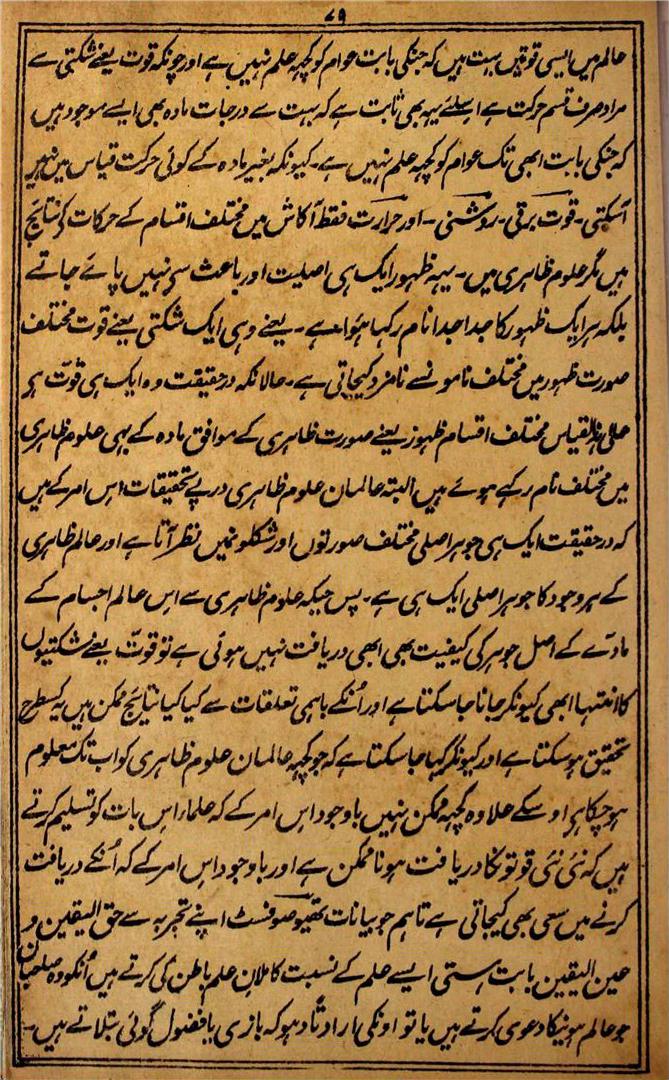 ٨٩
عالم میں ایسی قوتیں بہت ہیں کہ جنکی بابت عوام کو کچہہ علم نہیں ہے اور چونکہ قوت یعنے شکتی سے
مراد صرف قسم حرکت ہے اسلئے یہہ بھی ثابت ہے کہ بہت سے درجات مادہ بھی ایسے موجود ہیں
کہ جنکی بابت ابھی تک عوام کو کچہہ علم نہیں ہے۔ کیونکہ بغیر مادہ کے کوئی حرکت قیاس میں نہیں
آسکتی۔ قوت برقی۔ روشنی۔ اور حرارت فقط آکاش میں مختلف اقسام کے حرکات کے نتایج
ہیں مگر علوم ظاہری میں۔ یہہ ظہور ایک ہی اصلیت اور باعث سے نہیں پائے جاتے
بلکہ ہر ایک ظہور کا جدا جدا نام رکہا ہوا ہے۔ یعنے وہی ایک شکتی یعنے قوت مختلف
صورت ظہور میں مختلف نامونسے نامزد کیجاتی ہے۔ حالانکہ درحقیقت وہ ایک ہی قوت ہے
علی ہذالقیاس مختلف اقسام ظہور یعنے صورت ظاہری کے موافق مادہ کے بہی علوم ظاہری
میں مختلف نام رکہے ہوئے ہیں البتہ عالمان علوم ظاہری درپے تحقیقات اس امر کے ہیں
کہ درحقیقت ایک ہی جوہر اصلی مختلف صورتوں اور شکلونمیں نظر آتا ہے اور عالم ظاہری
کے ہر وجود کا جوہر اصلی ایک ہی ہے۔ پس جبکہ علوم ظاہری سے اس عالم اجسام کے
مادّے کے اصل جوہر کی کیفیت بھی ابھی دریافت نہیں ہوئی ہے تو قوتّ یعنے شکتیوں
کا انتہا ابھی کیونکر جانا جاسکتا ہے اور اُنکے باہمی تعلقات سے کیا کیا نتایج ممکن ہیں یہ کسطرح
تحقیق ہوسکتا ہے اور کیونکر کہا جاسکتا ہے کہ جو کچہہ عالمان علوم ظاہری کو اب تک معلوم
ہوچکا ہے اوسکے علاوہ کچہہ ممکن نہیں باوجود اس امر کے کہ علماء اس بات کو تسلیم کرتے
ہیں کہ نئی نئی قوتونکا دریافت ہونا ممکن ہے اور باوجود اس امر کے کہ اُنکے دریافت
کرنے میں سعی بھی کیجاتی ہے تاہم جو بیانات تھیوصوفسٹ اپنے تجربہ سے حق الیقین و
عین الیقین بابت ہستی ایسے علم کے نسبت کاملان علم باطن کی کرتے ہیں اُنکو وہ صاحبان
جو عالم ہونیکا دعوی کرتے ہیں یا تو اونکی ارادتاً دہوکہ بازی یا فضول گوئی بتلاتے ہیں۔